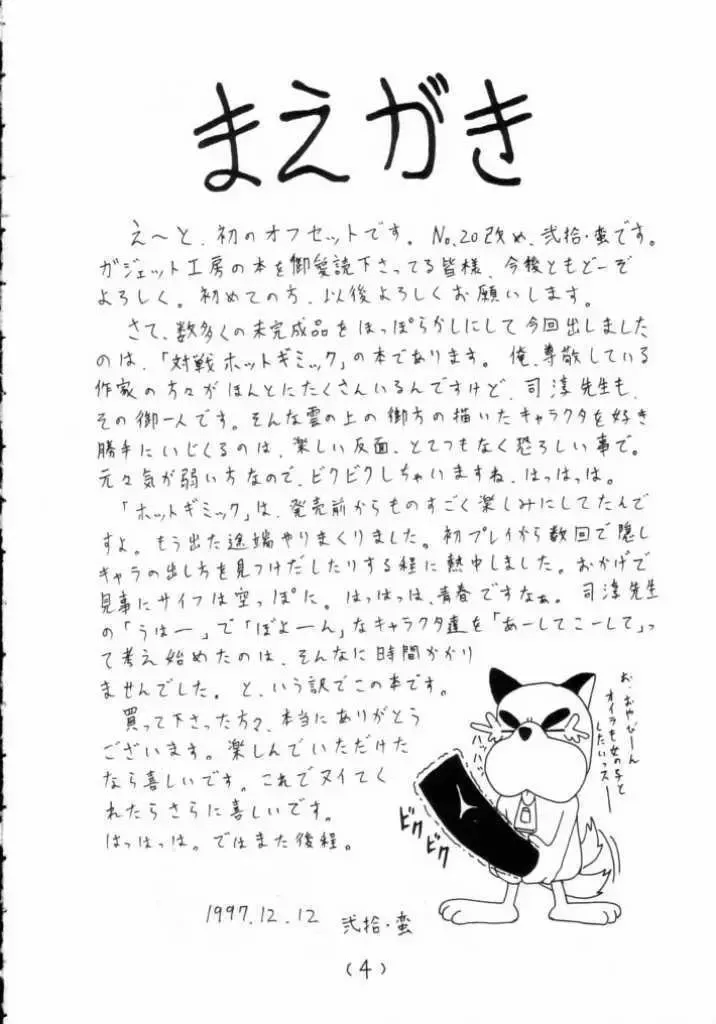 まえがき
え〜と、初のオフセットです。No.20改め、弐拾・蛮です。
ガジェット工房の本を御愛読下さってる皆様、今後ともどーぞ
よろしく。初めての方、以後よろしくお願いします。
さて、数多くの未完成品をほっぽらかしにして今回出しました
のは、「対戦ホットギミック」の本であります。俺、尊敬している
作家の方々がほんとにたくさんいるんですけど、司淳先生も、
その御一人です。そんな雲の上の御方の描いたキャラクタを好き
勝手にいじくるのは、楽しい反面、とてつもなく恐ろしい事で。
元々気が弱い方なので、ビクビクしちゃいますね、はっはっは。
「ホットギミック」は、発売前からものすごく楽しみにしてたんで
すよ。もう出た途端やりまくりました。初プレイから数回で隠し
キャラの出し方を見つけだしたりする程に熱中しました。おかげで
見事にサイフは空っぽに。はっはっは、青春ですなぁ。司淳先生
の「うはー」で「ぼよーん」なキャラクタ達を「あーしてこーして」っ
て考え始めたのは、そんなに時間かかり
ませんでした。と、いう訳でこの本です。
買って下さった方々、本当にありがとう
ございます。楽しんでいただけた
なら喜しいです。これでヌイてく
れたらさらに喜しいです。
はっはっは。ではまた後程。
お、おやびーん
オイラも女の子と
したいっスー
ハッハッ
ビク
ビク
1997.12.12 弐拾・蛮
(4)